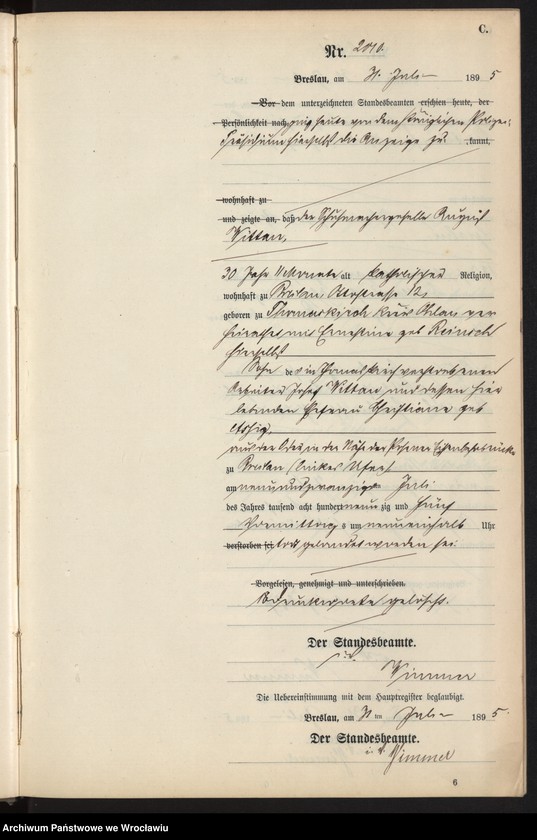 C.
Nr. 2010.
Breslau, am 31. Juli 1895
Vor dem unterzeichneten Standesbeamten erschien heute, der
Persönlichkeit nach ging heute von dem Königlichen Polizei-
Präsidium hierselbst die Anzeige zu. kannt,
wohnhaft zu
und zeigte an, daß der Schuhmachergeselle August
Wittan,
30 Jahr 11 Monate alt katholischer Religion,
wohnhaft zu Breslau 12,
geboren zu Thomaskirch Kreis Ohlau ver
heirathet mit Ernestine geb Reinsch
hierselbst
Sohn des in Thomaskirch verstorbenen
Arbeiters Josef Wittan und dessen hier
lebenden Ehefrau Christiane geb
aus der Oder in der Nähe der Posener Eisenbahnbrücke
zu Breslau (linkes Ufer)
am neunundzwanzigsten Juli
des Jahres tausend acht hundert neunzig und fünf
Vormittags um neuneinhalb Uhr
verstorben sei. todt gelandet worden sei.
Vorgelesen, genehmigt und unterschrieben.
Vordruckworte gelöscht.
Der Standesbeamte.
i. V.
Wimmer
Die Uebereinstimmung mit dem Hauptregister beglaubigt.
Breslau, am 31ten Juli 1895.
Der Standesbeamte.
i. V. Wimmer
6
Archiwum Państwowe we Wrocławiu